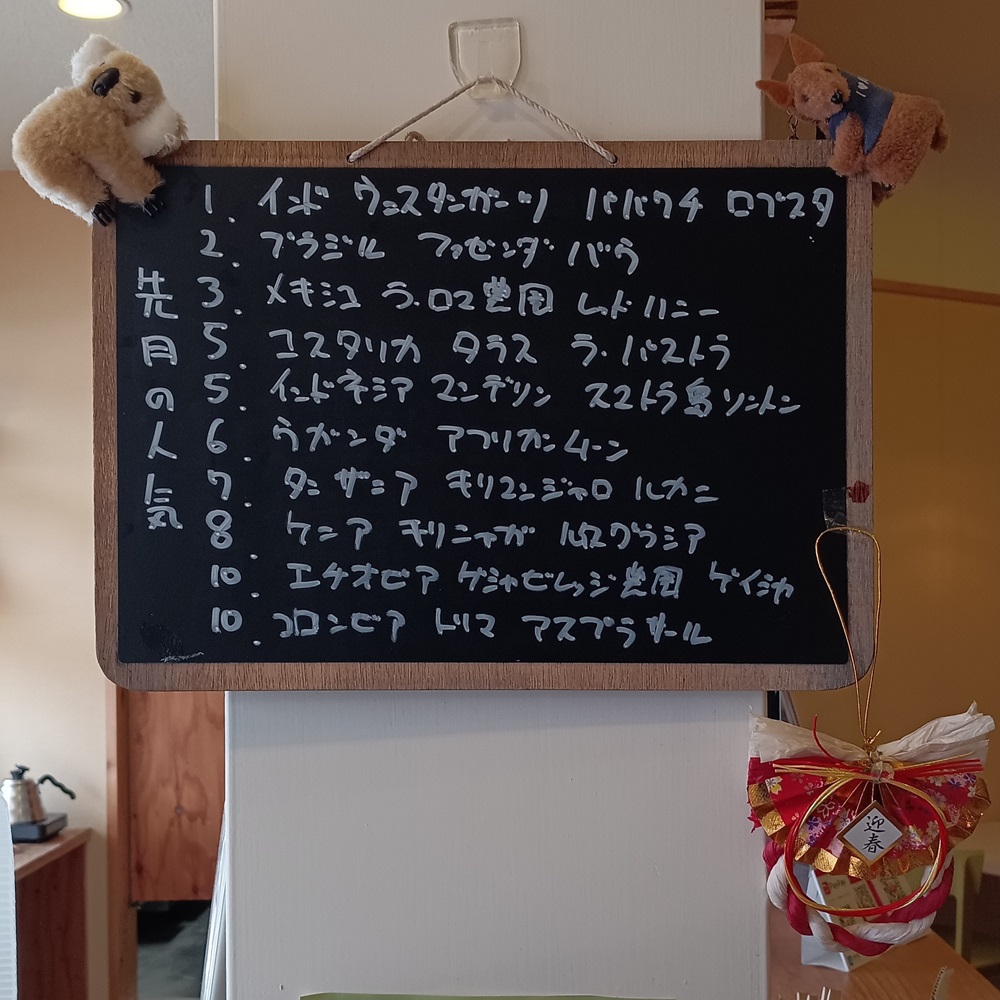 先月の人気
1. インド ウェスタンガーツ ババウチ ロブスタ
2. ブラジル ファゼンダ バウ
3. メキシコ ラ・ロマ農園 レッドハニー
5. コスタリカ タラス ラ・パストラ
5. インドネシア マンデリン スマトラ島リントン
6. ウガンダ アフリカンムーン
7. タンザニア キリマンジャロ ルカニ
8. ケニア キリニャガ グラシア
10. エチオピア ゲシャビレッジ農園 ゲイシャ
10. コロンビア トリマ アスプラサール
迎春